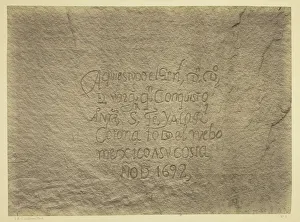 Aqui estubo el Gen.
de Vargas qn conquisto
A Nra S. Fe Y A la R.l
Corona todo el nuebo
mexico A Su Costa
Año D. 1692